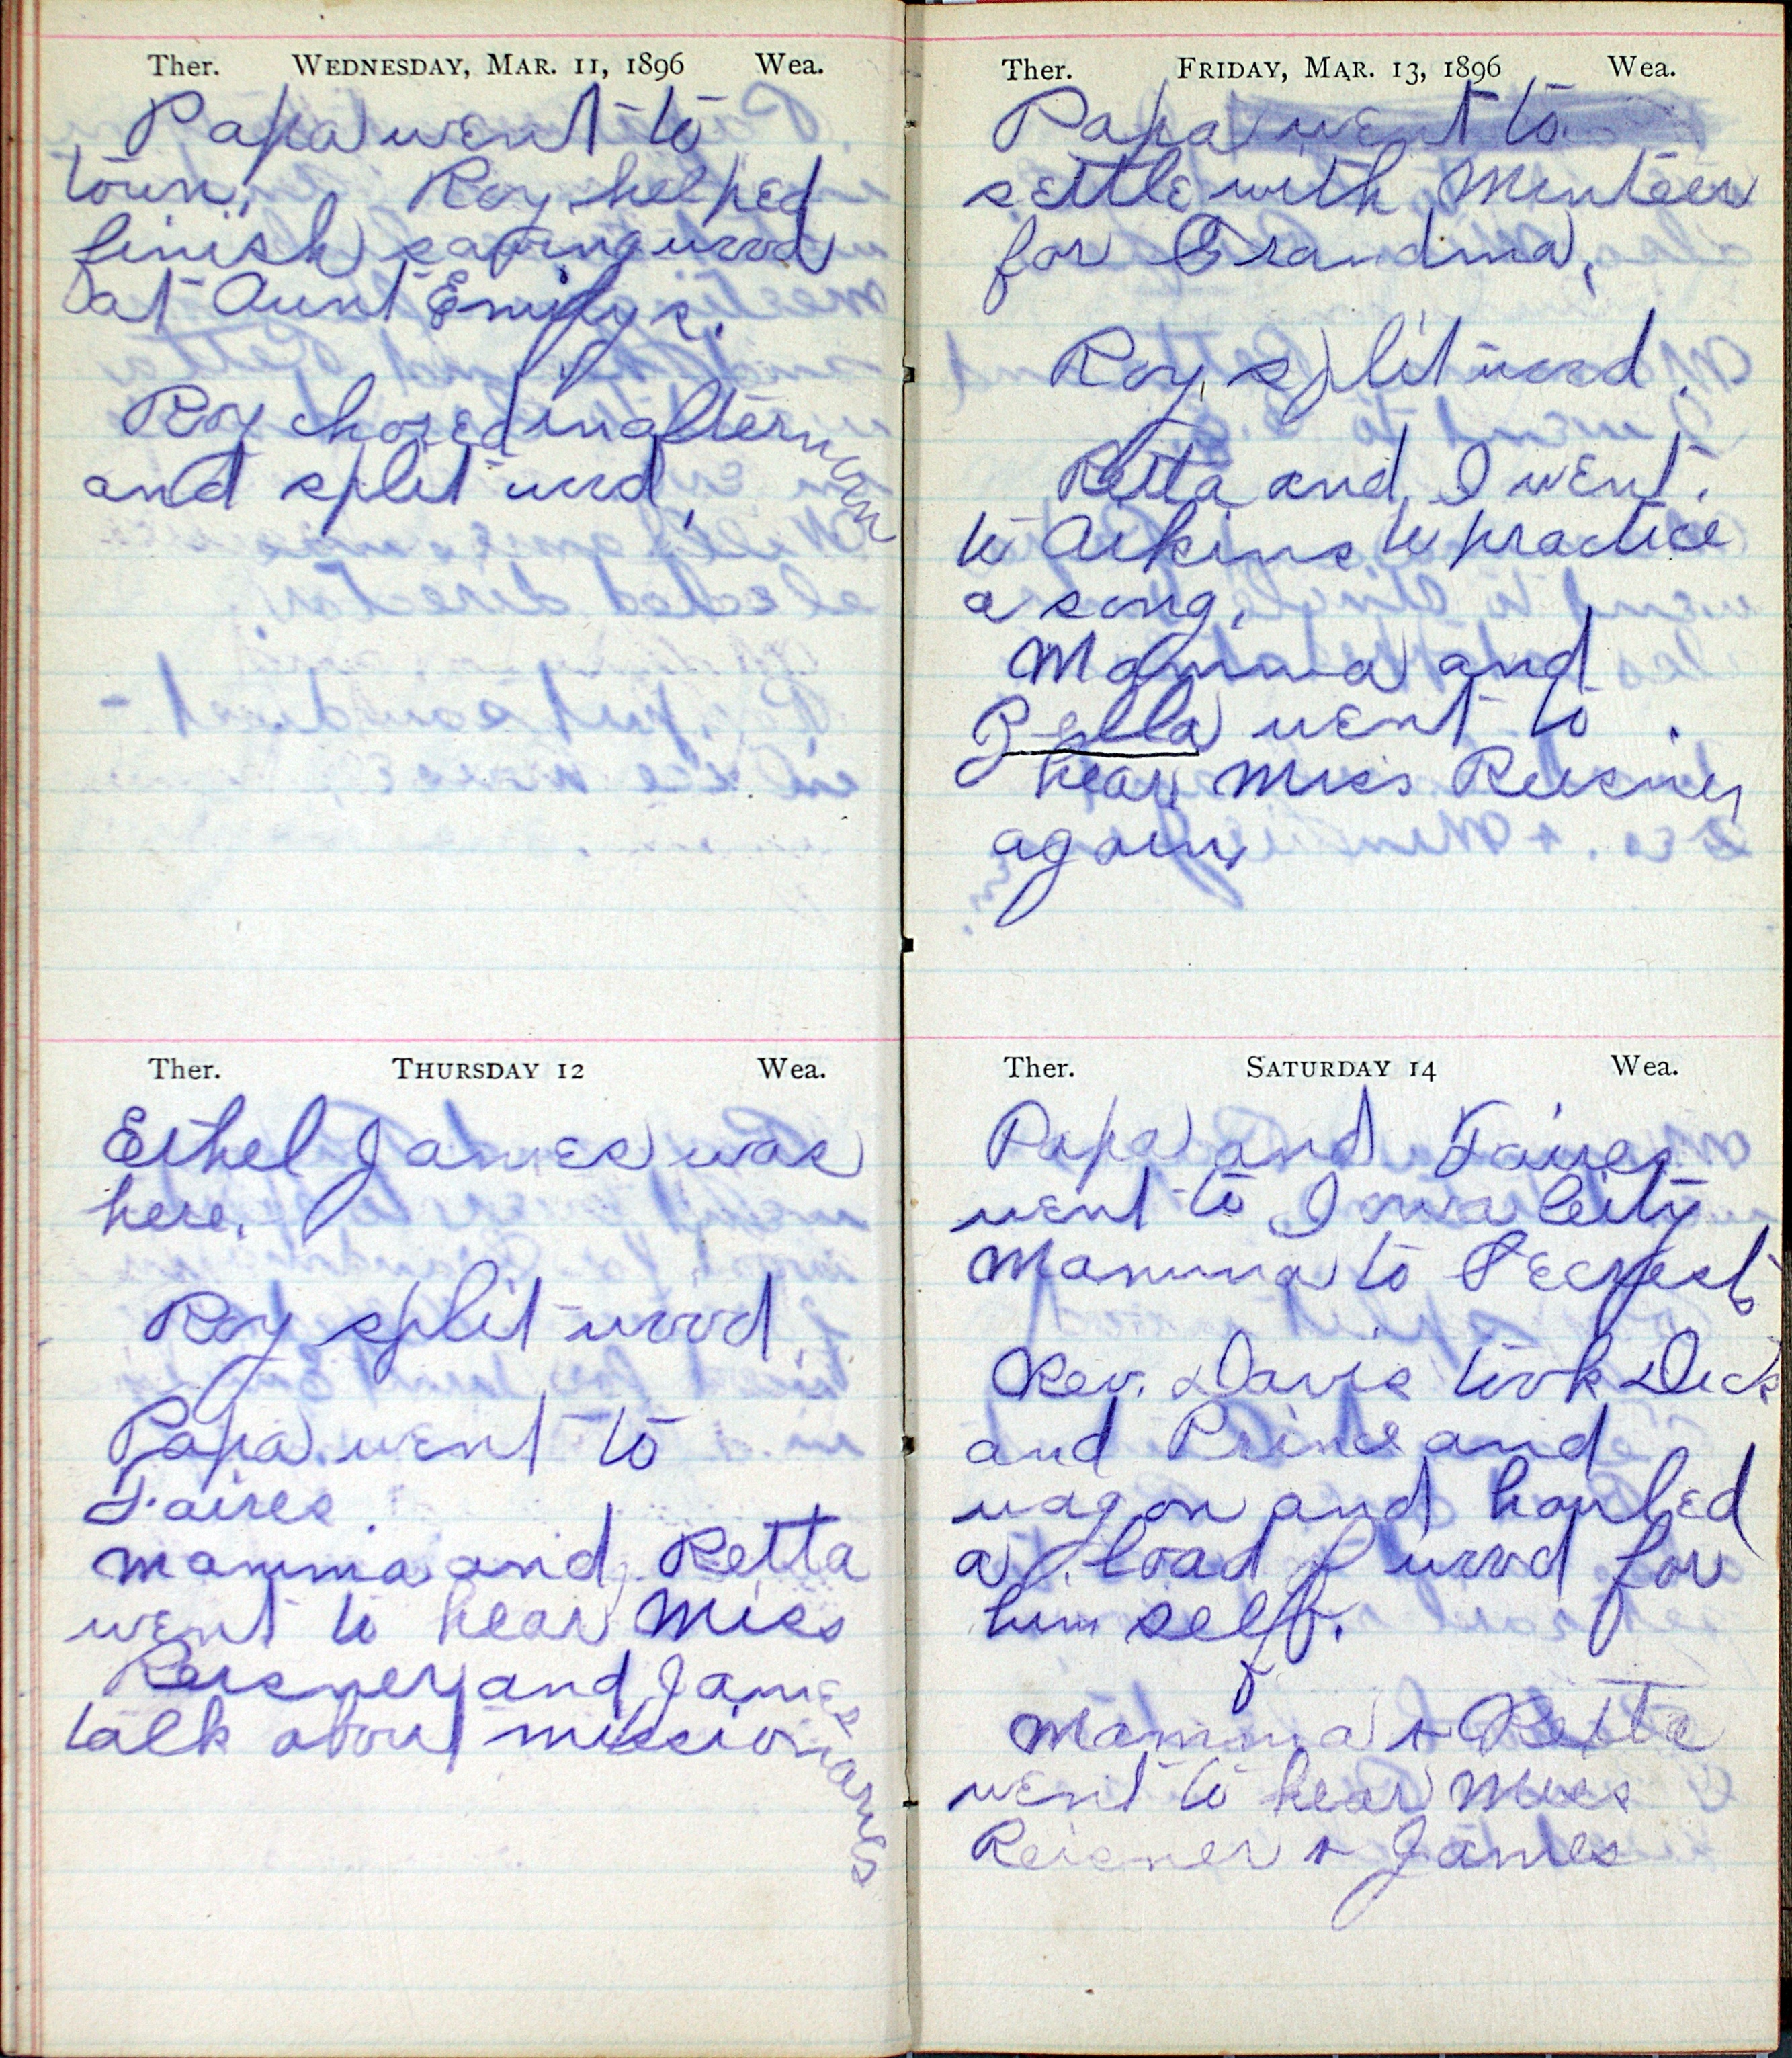 Ther. WEDNESDAY, MAR. 11, 1896 Wea.
Papa went to
town. Roy helped
finish sawing wood
at Aunt Emily's.
Roy chored in afternoon
and split wood.
Ther. THURSDAY 12 Wea.
Ethel James was
here.
Roy split wood.
Papa went to
Faires.
Mamma and Retta
went to hear Miss
Reisner and James
talk about missionaries
Ther. FRIDAY, MAR. 13, 1896 Wea.
Papa went to
settle with Menteer
for Grandma.
Roy split wood.
Retta and I went.
to Aikins to practice
a song.
Mamma and
Zella went to.
hear Miss Reisner
again
Ther. SATURDAY 14 Wea.
Papa and Faires
went to Iowa City
Mamma to Secrests
Rev. Davis took Dick
and Prince and
wagon and hauled
a load of wood for
him self.
Mamma + Retta
went to hear Miss
Reisner + James